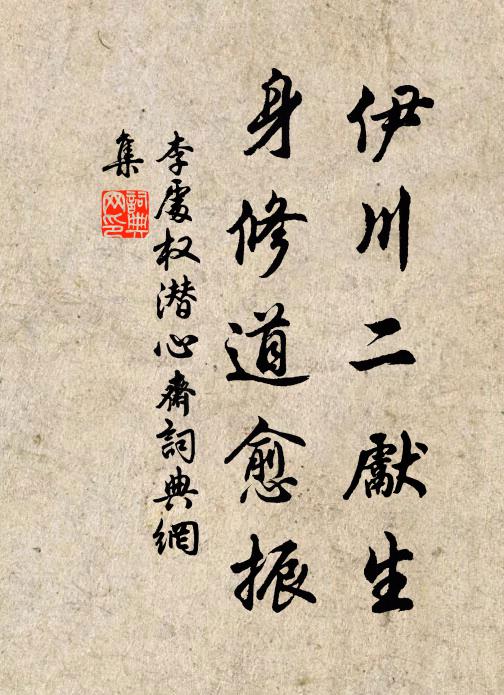 伊川二獻生
身修道愈振
李處权潜心齋詞典網
集
詞典
网印